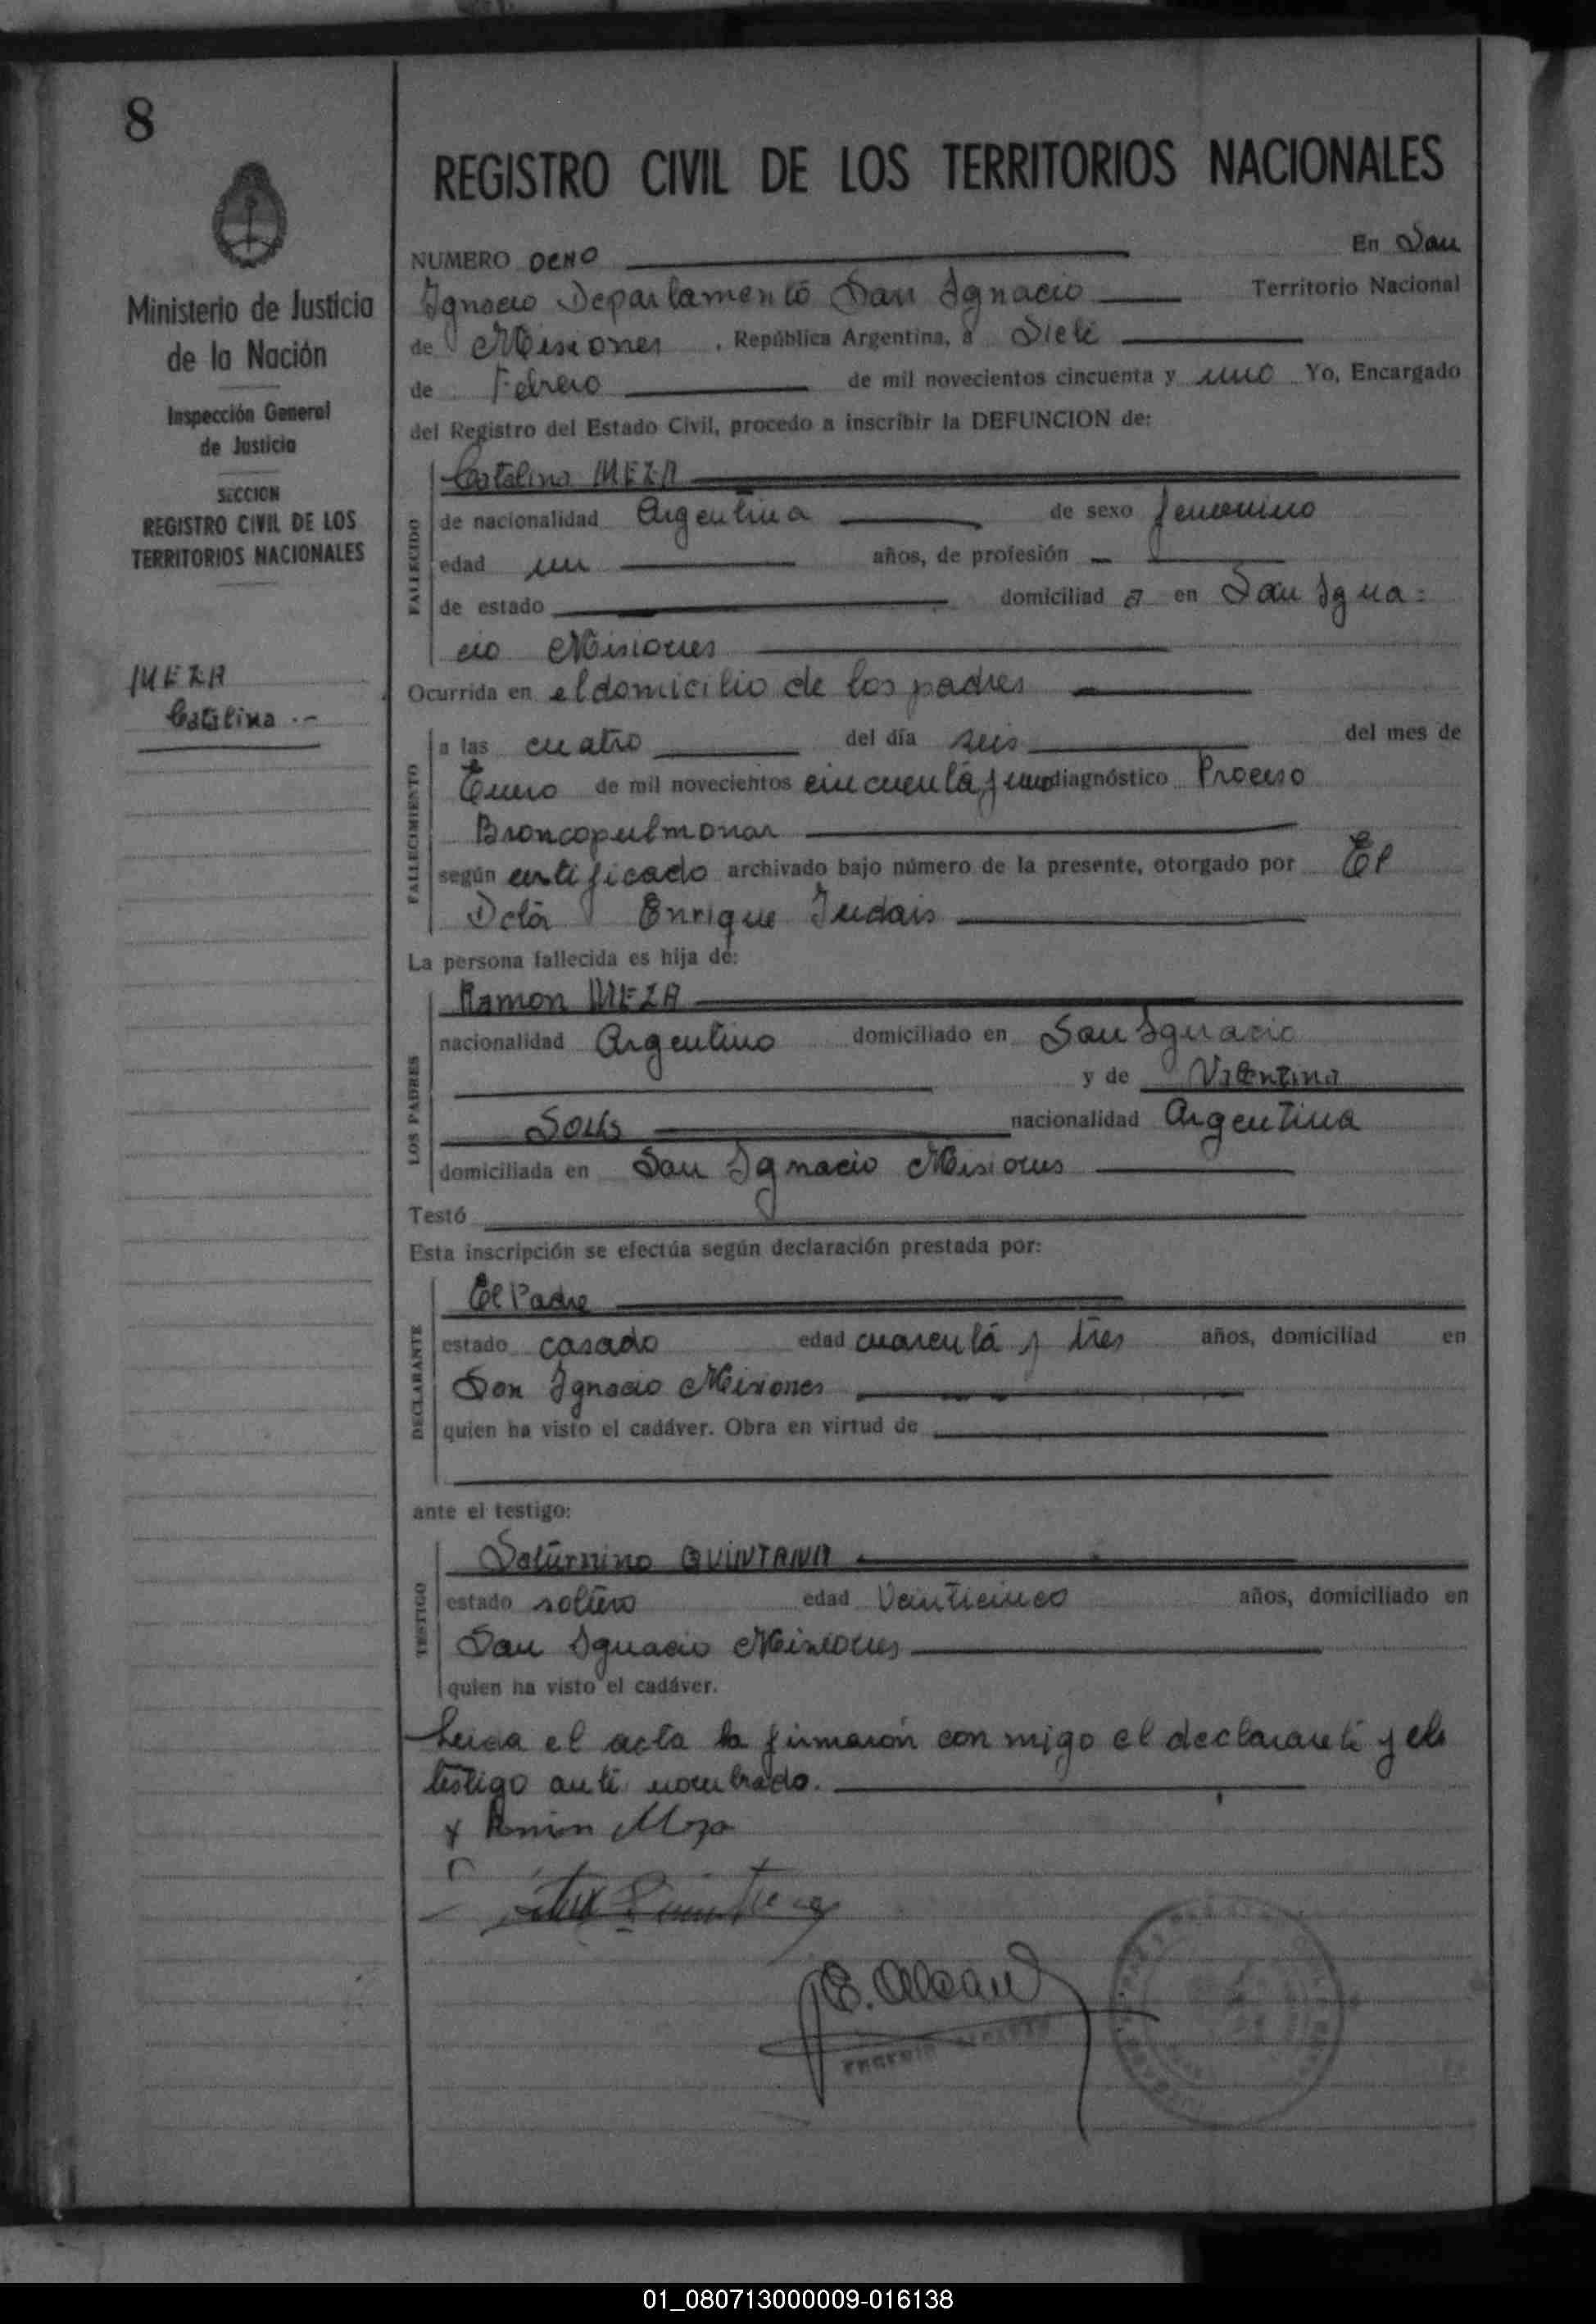 8
Ministerio de Justicia
de la Nación
Inspección General
de Justicia
SECCION
REGISTRO CIVIL DE LOS
TERRITORIOS NACIONALES
MEZA
Catalina .-
REGISTRO CIVIL DE LOS TERRITORIOS NACIONALES
NUMERO OCHO En San
Ignacio Departamento San Ignacio Territorio Nacional
de Misiones , República Argentina, a Siete
de Febrero de mil novecientos cincuenta y uno Yo, Encargado
del Registro del Estado Civil, procedo a inscribir la DEFUNCION de:
FALLECIDO
Catalina MEZA
de nacionalidad Argentina de sexo femenino
edad un años, de profesión —
de estado domiciliad a en San Igna=
cio Misiones
Ocurrida en el domicilio de los padres
FALLECIMIENTO
a las cuatro del día seis del mes de
Enero de mil novecientos cincuenta y uno diagnóstico Proceso
Broncopulmonar
según certificado archivado bajo número de la presente, otorgado por El
Dctor Enrique
La persona fallecida es hija de:
LOS PADRES
Ramon MEZA
nacionalidad Argentino domiciliado en San Ignacio
y de Valentina
nacionalidad Argentina
domiciliada en San Ignacio Misiones
Testó
Esta inscripción se efectúa según declaración prestada por:
DECLARANTE
El Padre
estado casado edad cuarenta y tres años, domiciliad en
San Ignacio Misiones
quien ha visto el cadáver. Obra en virtud de
ante el testigo:
TESTIGO
Saturnino QUINTANA
estado soltero edad Veinticinco años, domiciliado en
San Ignacio Misiones
quien ha visto el cadáver.
Leida el acta la firmarón con migo el declarante y el
testigo ante nombrado.
x Ramon Meza
01_080713000009-016138